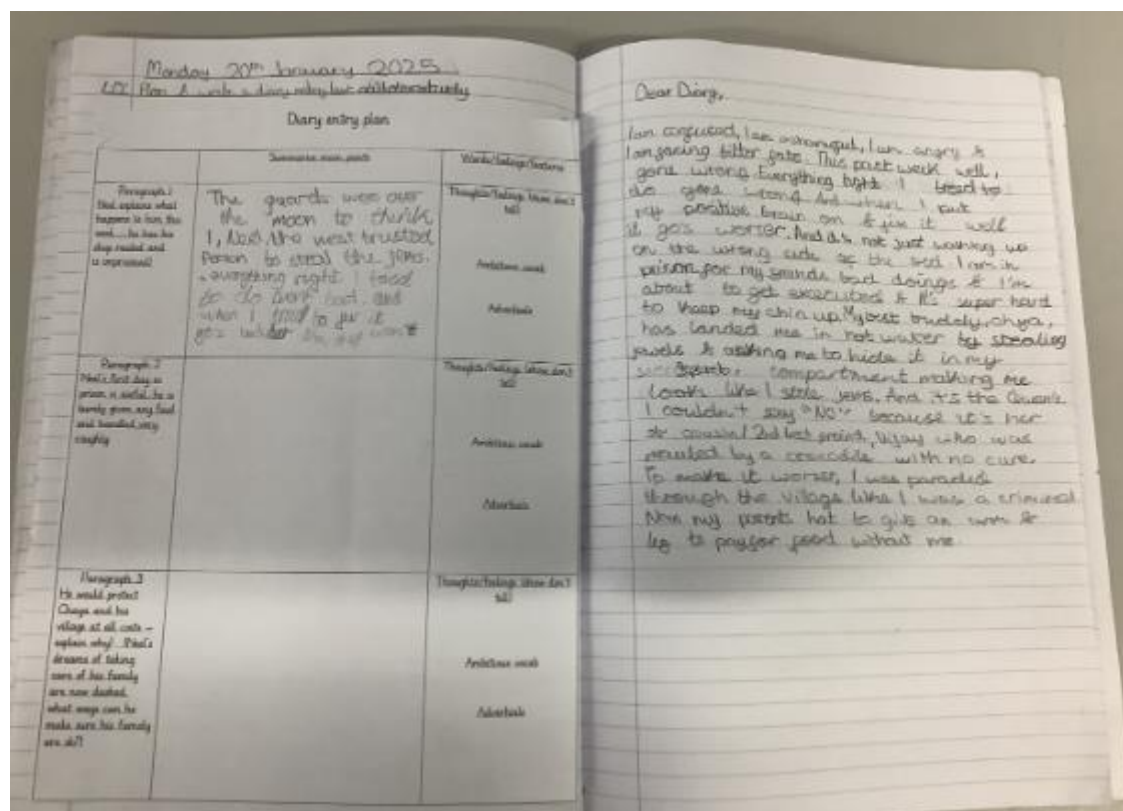 Monday 20th January 2025
Plan & write a diary entry
Diary entry plan
Summarise main points
Words/feelings/features
Paragraph 1
Neel explains what
happens to him this
week
and
is imprisoned!
The guards were over
the moon to think
I, Neel the most trusted
Person to steal the jems.
everything right I tried
to do went bad and
when I tried to fix it
Thoughts/feelings (show don't
tell)
Ambitious vocab
Adverbials
Paragraph 2
Neel's first day in
prison is awful, he is
barely given any food
and handled very
roughly
Thoughts/feelings (show don't
tell)
Ambitious vocab
Adverbials
Paragraph 3
He would protect
Chaya and his
village at all costs –
explain why! Neel's
dreams of taking
care of his family
are now dashed,
what ways can he
make sure his family
are ok?
Thoughts/feelings (show don't
tell)
Ambitious vocab
Adverbials
Dear Diary,
I am confused, I am I am angry &
I am facing bitter fate. This past week well,
gone wrong. Everything I
do gone wrong And when I put
my positive brain on & fix it well
it gos worser. And it's not just waking up
on the wrong side of the bed. I am in
prison for my bad doings & I'm
about to get executed & It's super hard
to keep my chin up. My best
has landed me in hot water by stealing
jewels & asking me to hide it in my
compartment making me
Look like I stole jems. And it's the Queen's
I couldn't say "No" because it's her
cousin/2nd best freind, Vijay who was
by a crocodile with no cure.
To make it worser, I was paraded
through the village like I was a criminal
Now my parents hat to give an arm &
leg to pay for food without me.